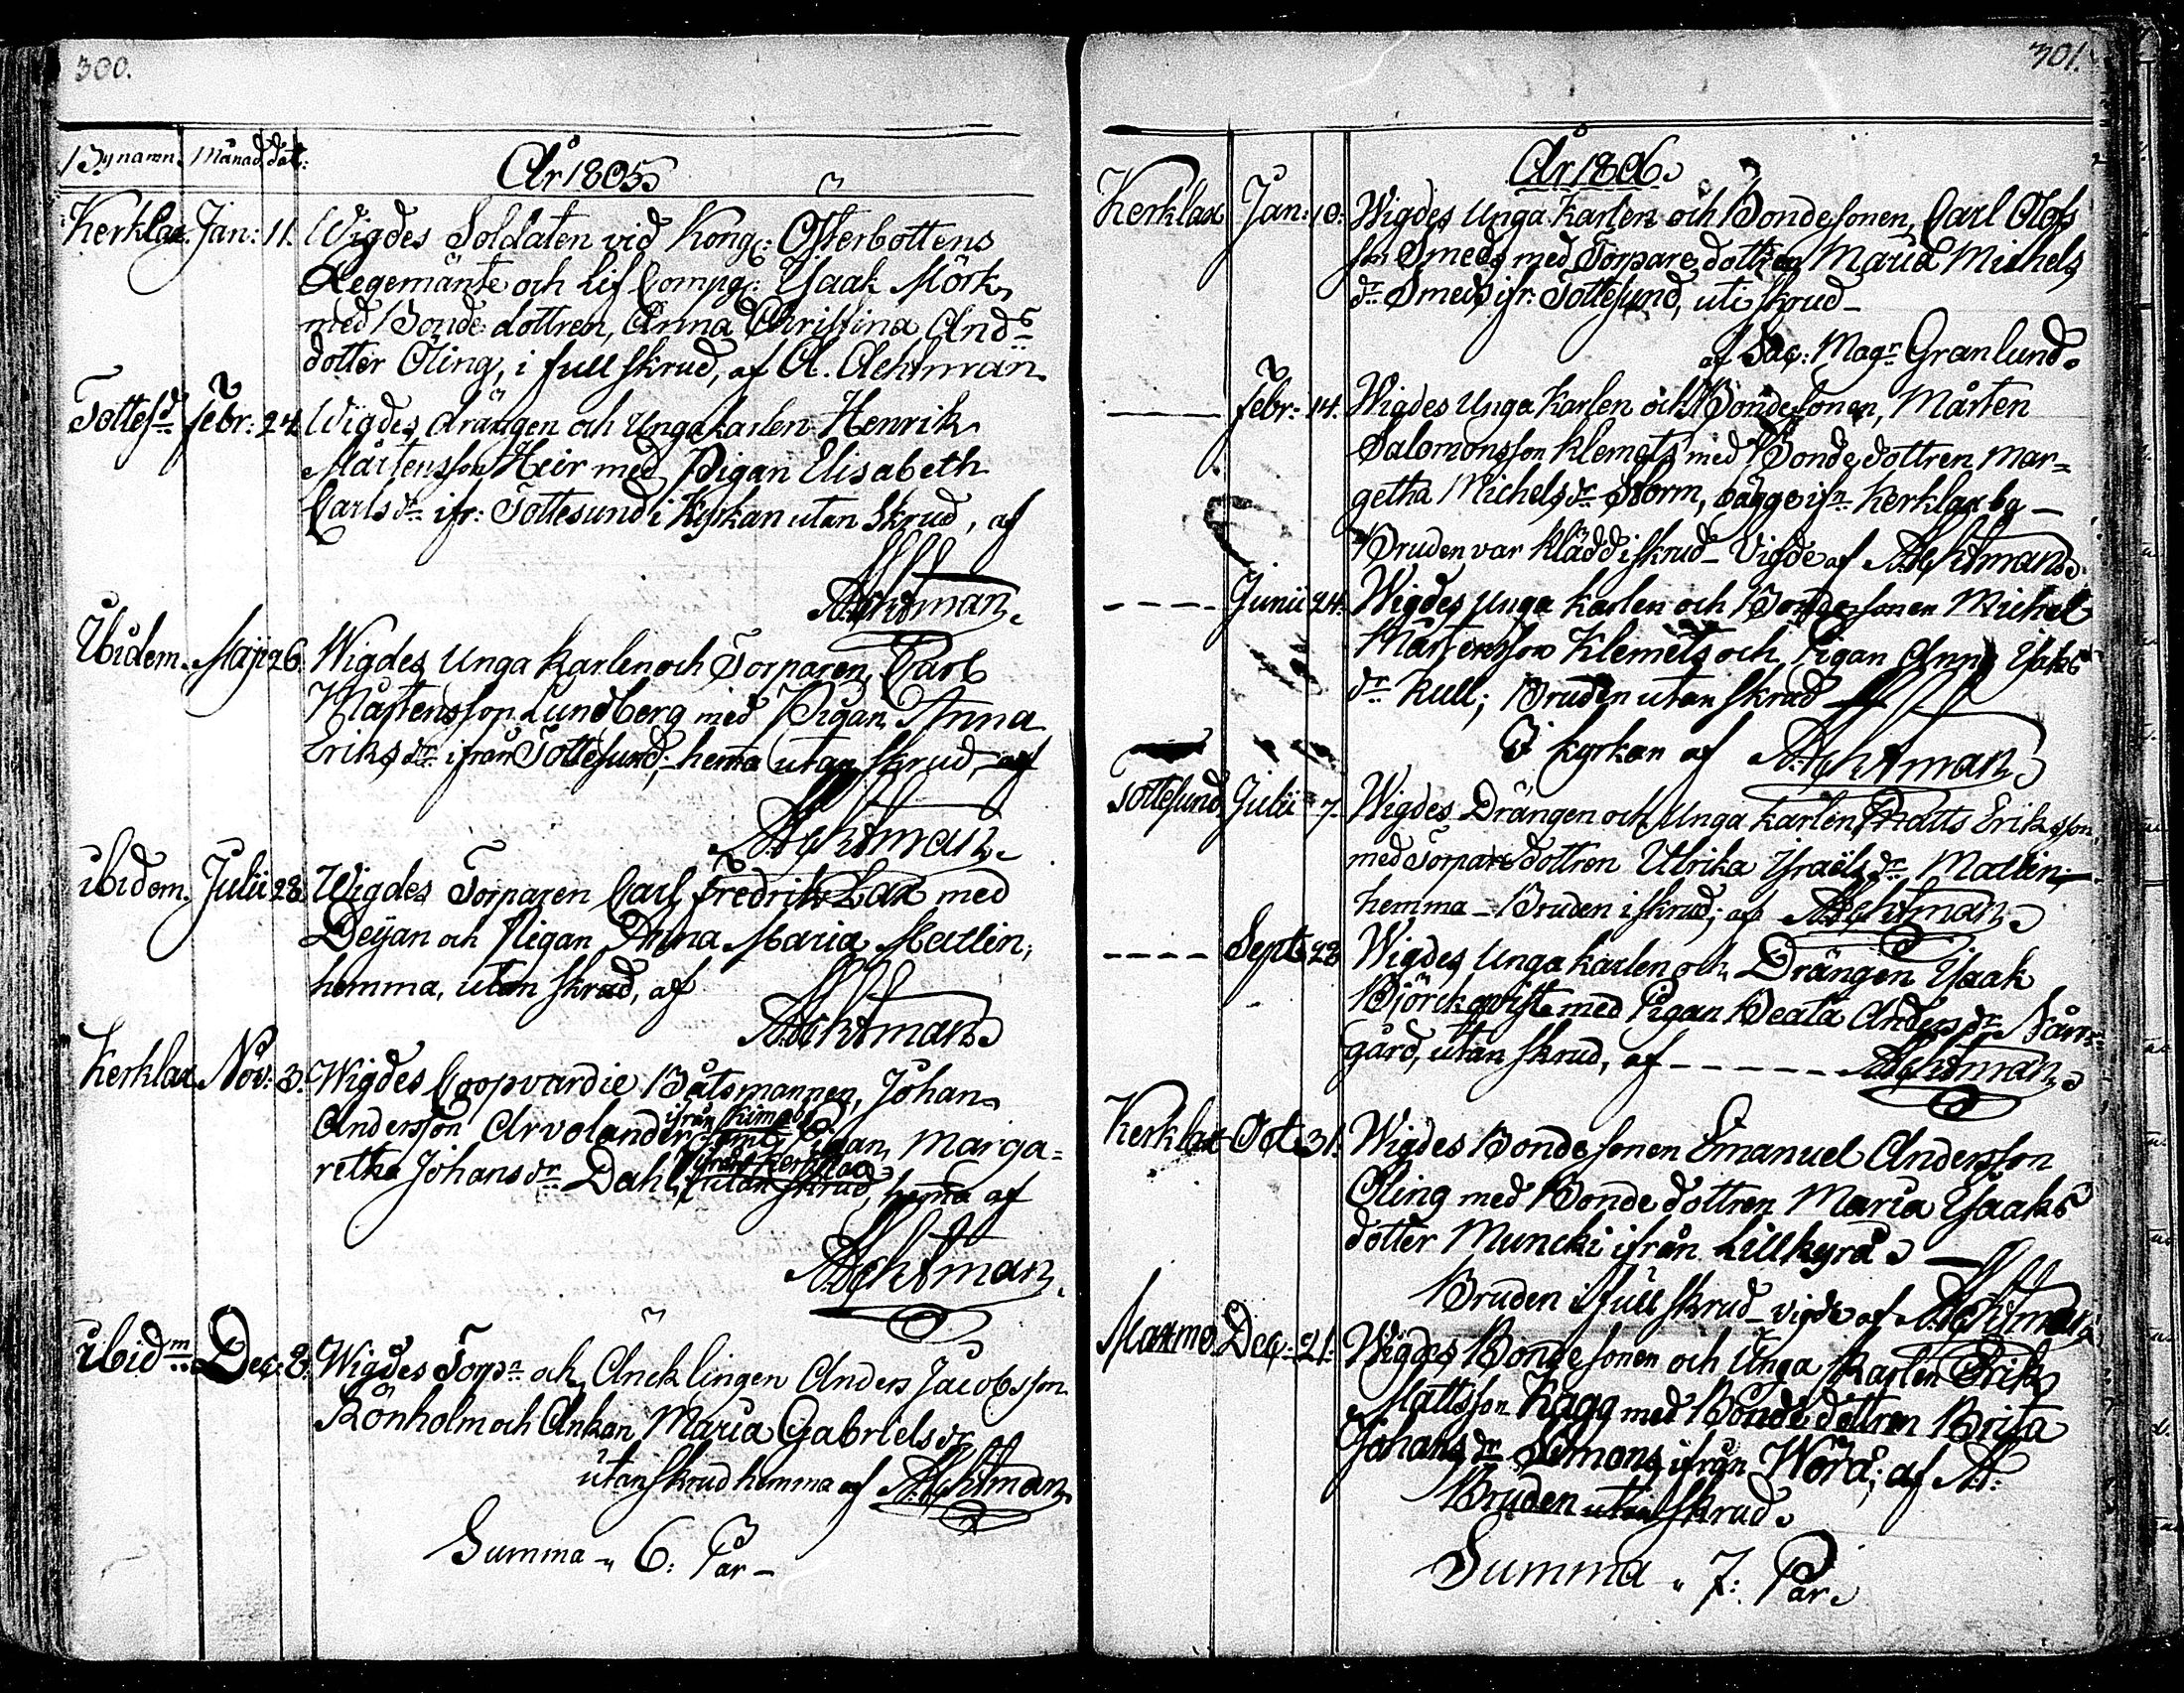 300.
Bynamn. Månad. dat:
År 1805
Kerklax. Jan: 11. Wigdes Soldaten vid Kongl: Österbottens
Regemänte och Lif Compg: Isaak Mörk
med Bonde dottren, Anna Christina And.s
dotter Öling, i full skrud, af A. Aehtman
Tottesd. Febr: 24. Wigdes drängen och Unga karlen Henrik
Mårtensson Heir med Pigan Elisabeth
Carlsdr. ifr: Tottesund i Kyrkan utan skrud, af
A: Aehtman.
Ibidem. Maji 26. Wigdes Unga karlen och Torparen, Carl
Mårtensson Lundberg med Pigan Anna
Eriksdr. ifrån Tottesund, hema utan skrud, af
A: Aehtman.
ibidem. Julii 28. Wigdes Torparen Carl Fredrik Lax med
Deijan och Pigan Anna Maria Matlin,
hemma, utan skrud, af
A: Aehtman
Kerklax. Nov: 3. Wigdes Coopvardie Båtsmannen, Johan
ifrån Kimo
Andersson Arvolander samt Pigan, Marga=
ifrån Kerklax
retha Johansdr. Dahl, utan skrud, hema af
A: Aehtman.
ibidm. Dec: 8. Wigdes Torpn. och Äncklingen Anders Jacobsson
Rönholm och Änkan Maria Gabrielsdr.
utan skrud hemma af A: Aehtman
Summa " 6: Par -
301.
År 1806.
Kerklax Jan: 10. Wigdes Unga karlen och Bondesonen, Carl Olofs
son Smeds med Torpare dottren Maria Michels
dr. Smeds ifr: Tottesund, uti skrud -
af Sac: Magr. Granlund.
Febr: 14. Wigdes Unga Karlen och Bondesonen, Mårten
Salomonsson Klemets med Bonde dottren Mar=
getha Michelsdr. Storm, bägge ifn. Kerklax by -
Bruden var klädd i skrud - Vigde af A: Aehtman
Junii 24. Wigdes Unga karlen och Bondesonen Michel
Mårtensson Klemets och Pigan Anna Isaks
dr. Kull; Bruden utan skrud -
I kyrkan af A: Aehtman
Tottesund. Julii 7. Wigdes Drängen och Unga karlen Matts Eriksson,
med Torparedottren Ulrika Israëlsdr. Matlin -
hemma - Bruden i skrud; af A: Aehtman
Sept: 28 Wigdes Unga karlen och Drängen Isaak
Björckqvist med Pigan Beata Andersdr. Nårr=
gård, utan skrud, af - - - - - A: Aehtman
Kerklax Oct: 31. Wigdes Bondesonen Emanuel Andersson
Öling med Bonde dottren Maria Isaaks
dotter Muncki ifrån Lillkyro -
Bruden i full skrud - vigde af A: Aehtman
Maxmo. Dec: 21. Wigdes Bondesonen och Unga karlen Erik
Mattsson Kagg med Bonde dottren Brita
Johansdr. Simons ifrån Wörå; af A: A:
Bruden utan skrud.
Summa " 7: Par.